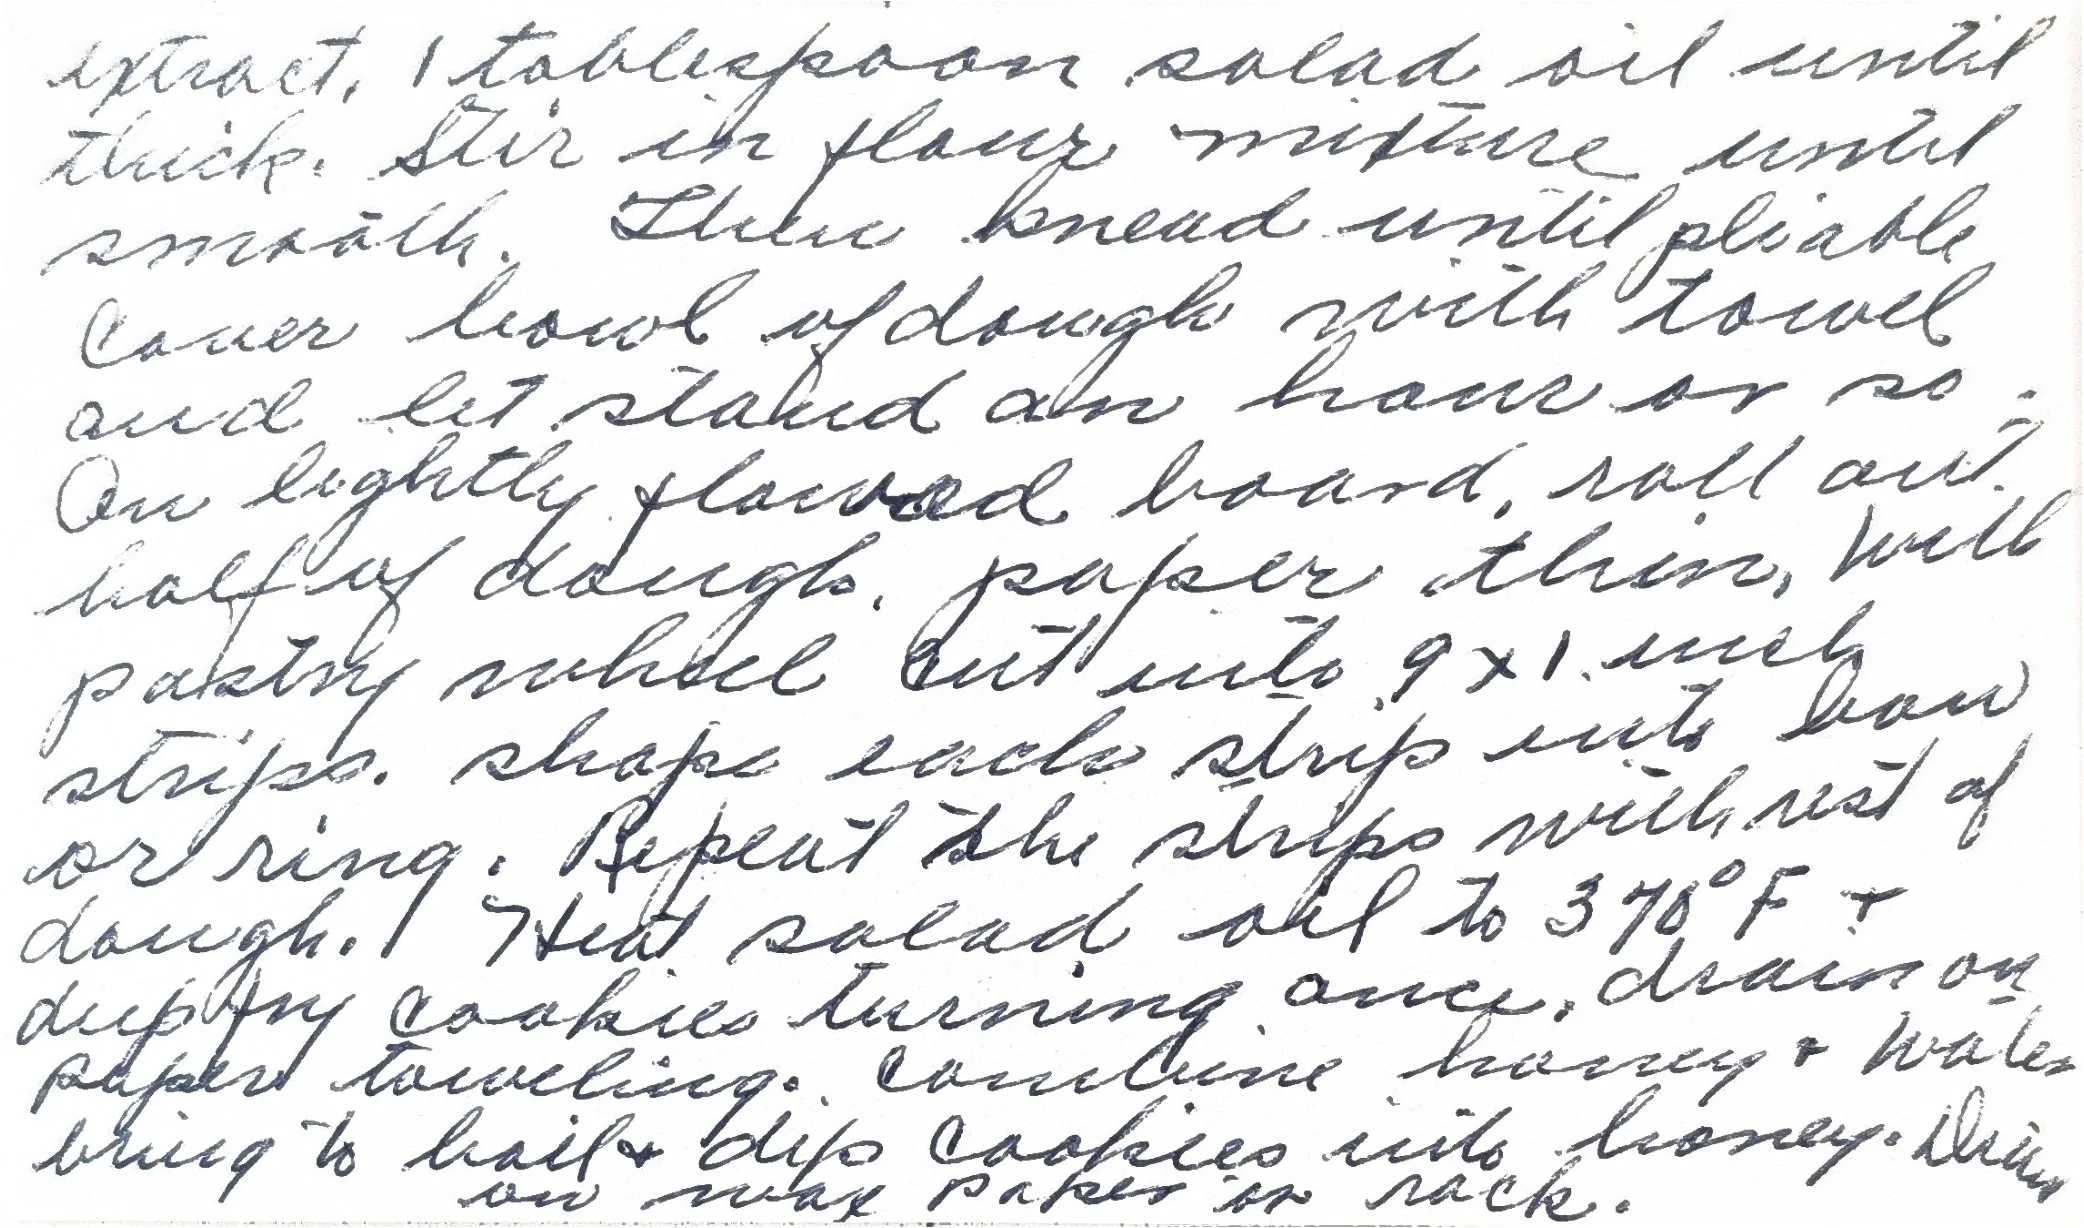 extract, 1 tablespoon salad oil until
thick. Stir in flour mixture until
smooth. Then knead until pliable
Cover bowl of dough with towel
and let stand an hour or so.
On lightly floured board, roll out
half of dough, paper thin, With
pastry wheel Cut into 9 x 1 inch
strips. shape each strip into bow
or ring. Repeat the strips with rest of
dough. Heat salad oil to 370° F +
deep fry cookies turning once, drain on
paper toweling. Combine honey + Water
bring to boil + dip Cookies into honey. Drain
on wax paper or rack.